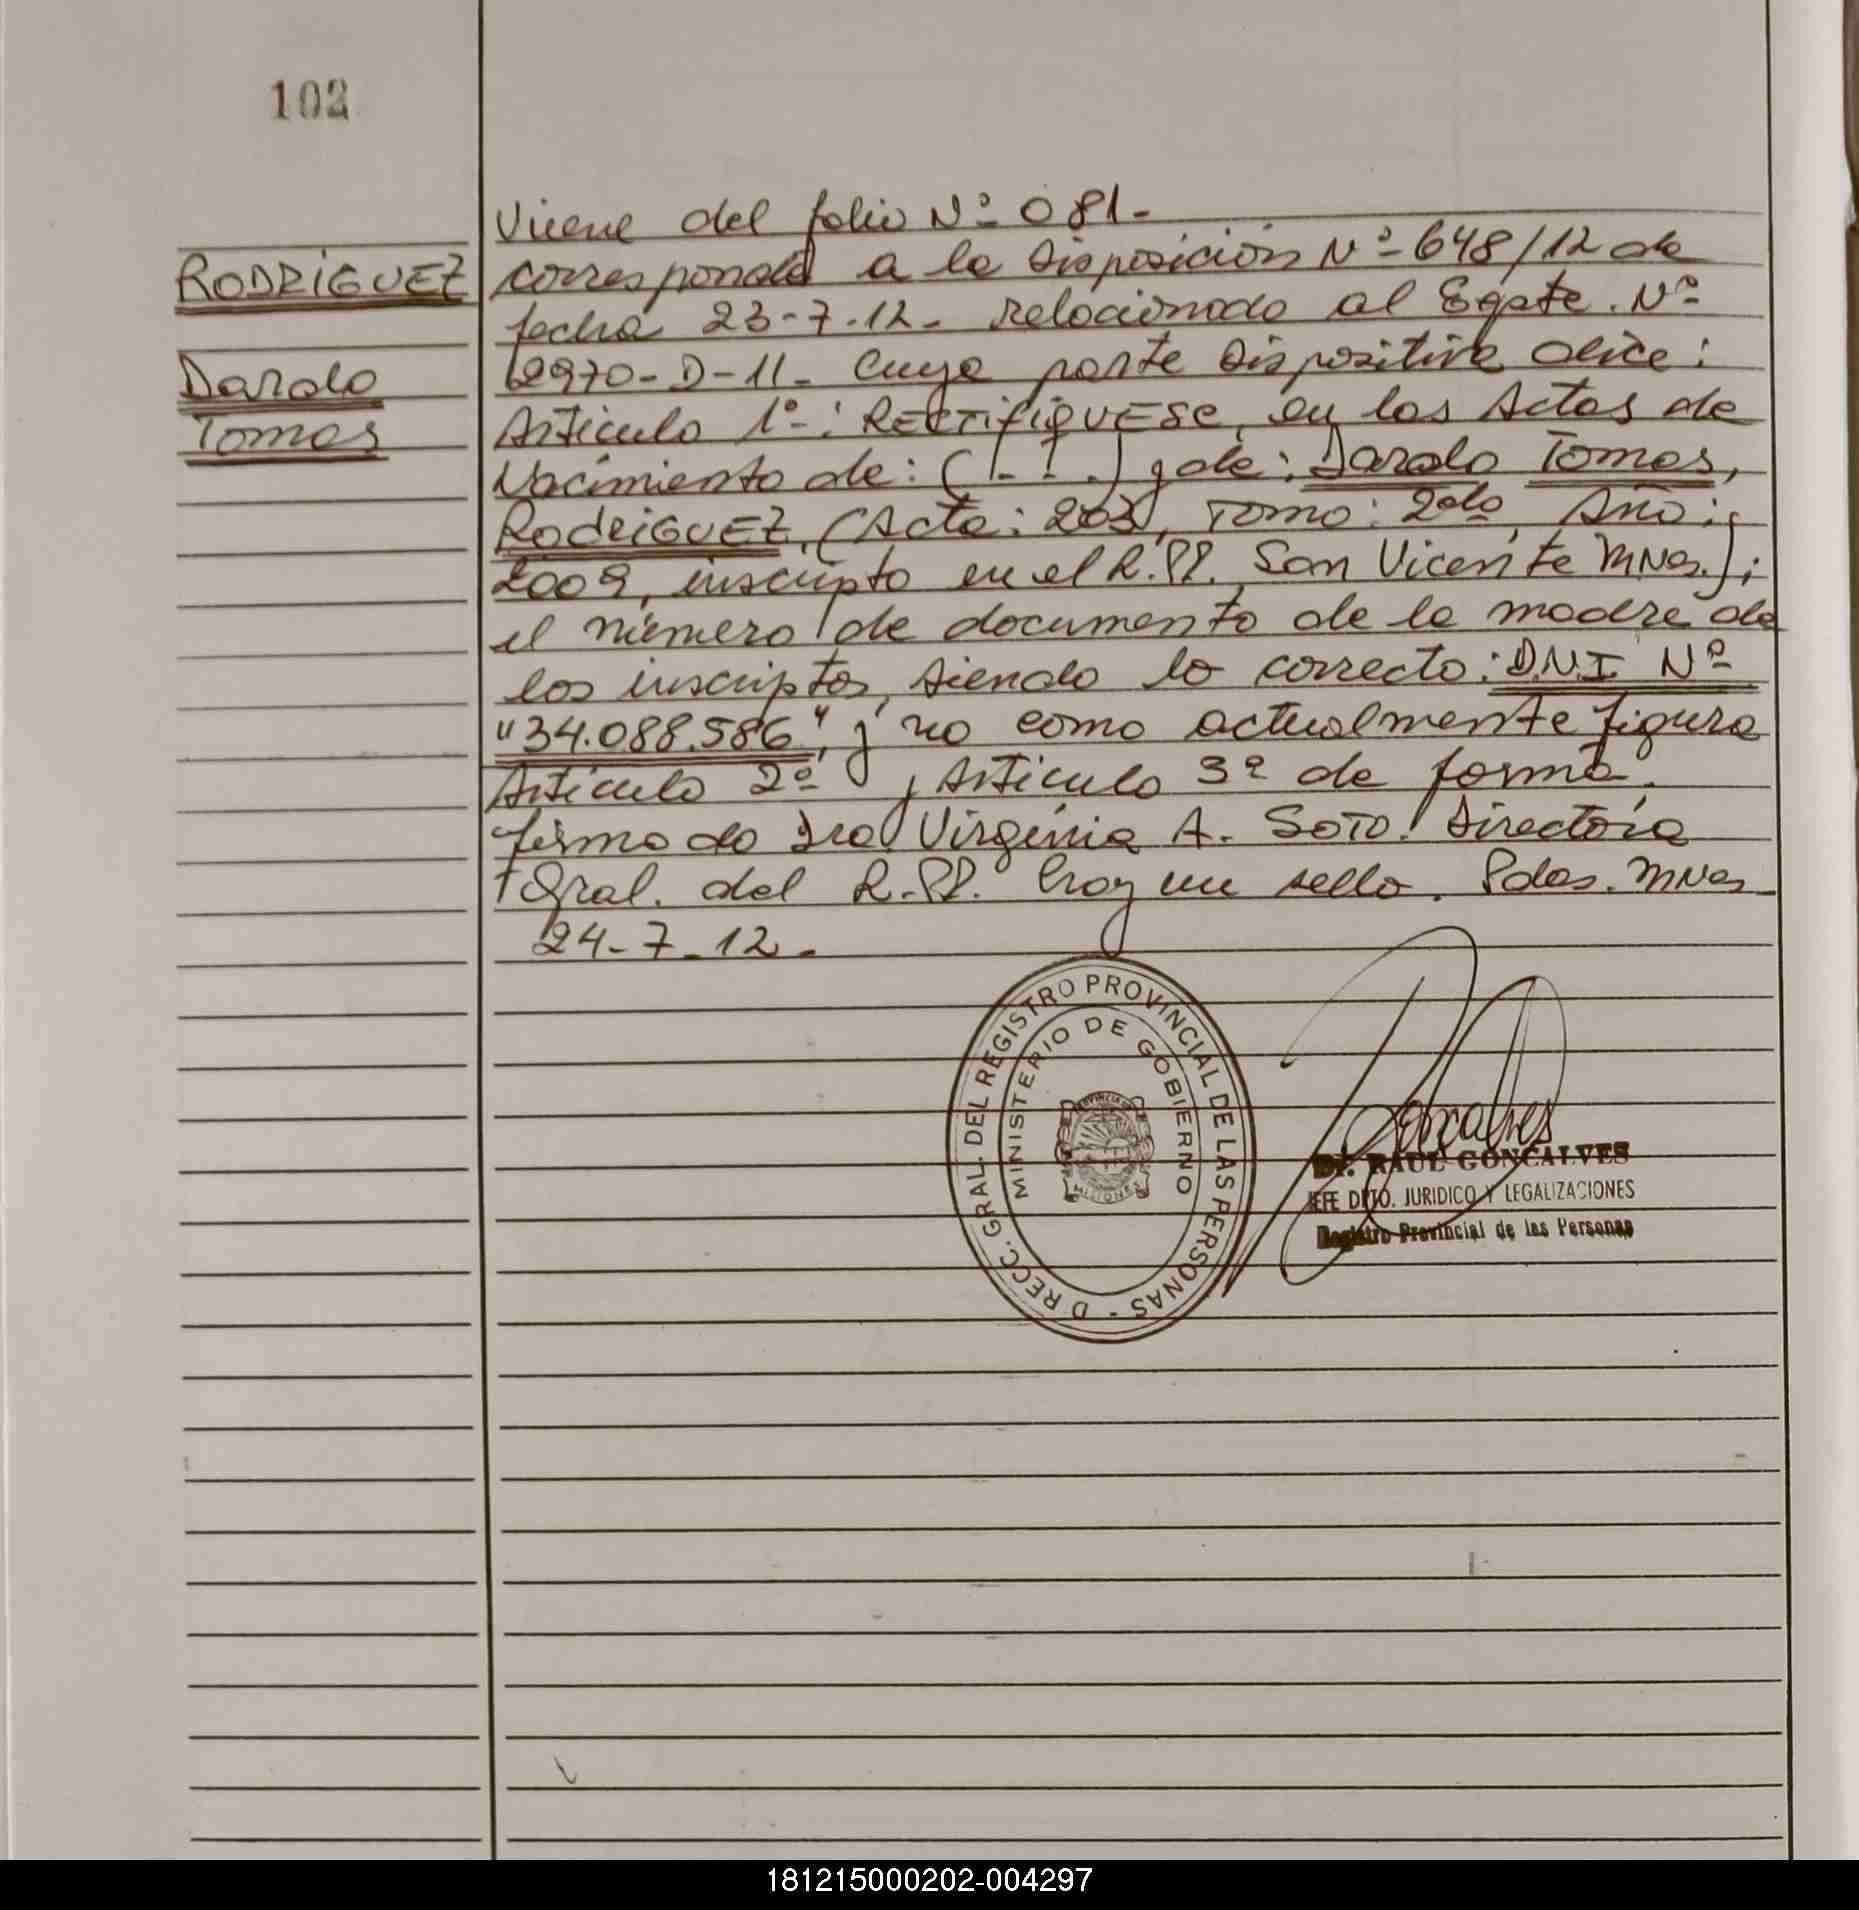 102
Viene del folio Nº 081-
RODRIGUEZ
corresponde a la Disposición Nº 648/12 de
fecha 23-7-12- relacionado al Expte. Nº
Dardo
2970-D-11- Cuya parte Dispositiva dice:
Tomas
Articulo 1º: RECTIFIQUESE, en las Actas de
Nacimiento de: (- - -) y de: Dardo Tomas,
RodRiGUEZ, (Acta: 203, Tomo: 2do, Año:
2009, inscripto en el R.PP. San Vicente Mnes.);
el número de documento de la madre de
los inscriptos, siendo lo correcto: D.N.I Nº
"34.088.586", y no como actualmente figura
Articulo 2º y Articulo 3º de forma.
firmado Dra Virginia A. SOTO. Directora
Gral. del R.PP. hay un sello. Pdas. Mnes
24-7-12-
DIRECC. GRAL. DEL REGISTRO PROVINCIAL DE LAS PERSONAS -
MINISTERIO DE GOBIERNO
PROVINCIA DE
MISIONES
Goncalves
Dr. RAUL GONCALVES
JEFE DPTO. JURIDICO Y LEGALIZACIONES
Registro Provincial de las Personas
181215000202-004297